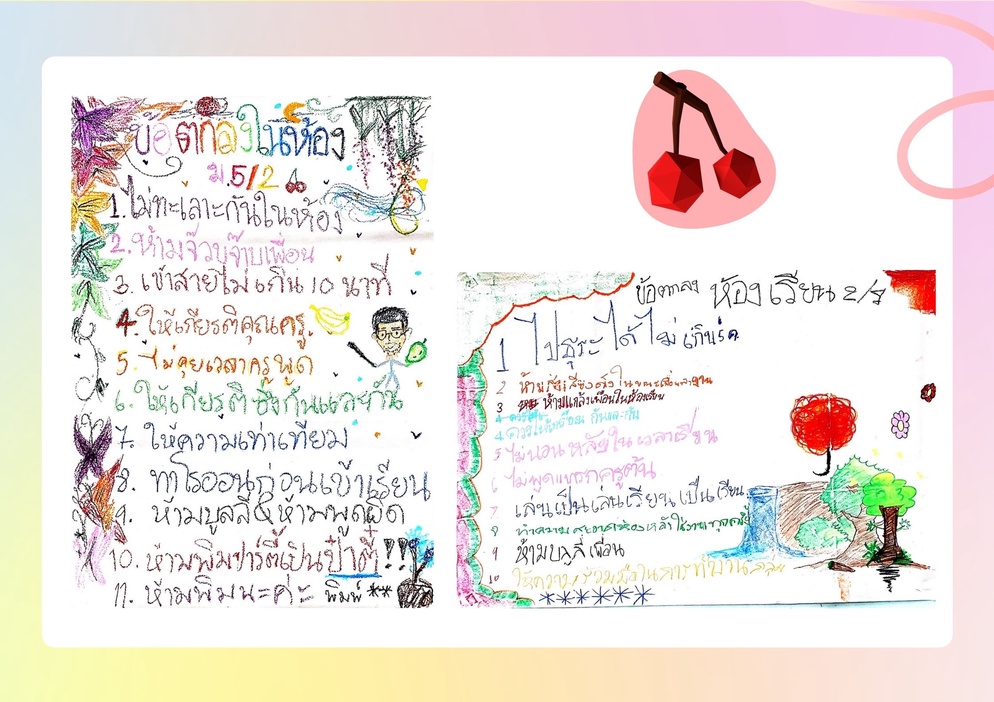 ข้อตกลงในห้อง
ม.5/2
1.ไม่ทะเลาะกันในห้อง
2.ห้ามจ๊วบจ๊าบเพื่อน
3.เข้าสายไม่เกิน 10 นาที
4.ให้เกียรติคุณครู
5.ไม่คุยเวลาครูพูด
6.ให้เกียรติซึ่งกันและกัน
7.ให้ความเท่าเทียม
8.ทาโรออนก่อนเข้าเรียน
9.ห้ามบูลลี่&ห้ามพูดผิด
10.ห้ามพิมปาร์ตี้เป็นป๋าตี้!!
11.ห้ามพิมนะค่ะ พิมพ์**
ข้อตกลง ห้องเรียน 2/
1 ไปธุระได้ไม่เกิน
2 ห้าม เสียงดังใน
3 ห้ามแกล้งเพื่อนในห้องเรียน
4 กันและกัน
5 ไม่นอนหลับในเวลาเรียน
6 ไม่พูดแทรกครูต้น
7 เล่นเป็นเล่นเรียนเป็นเรียน
8 ทำความสะอาดห้องหลัง
9 ห้ามบูลลี่เพื่อน
10 ให้ความร่วมมือในการทำงาน